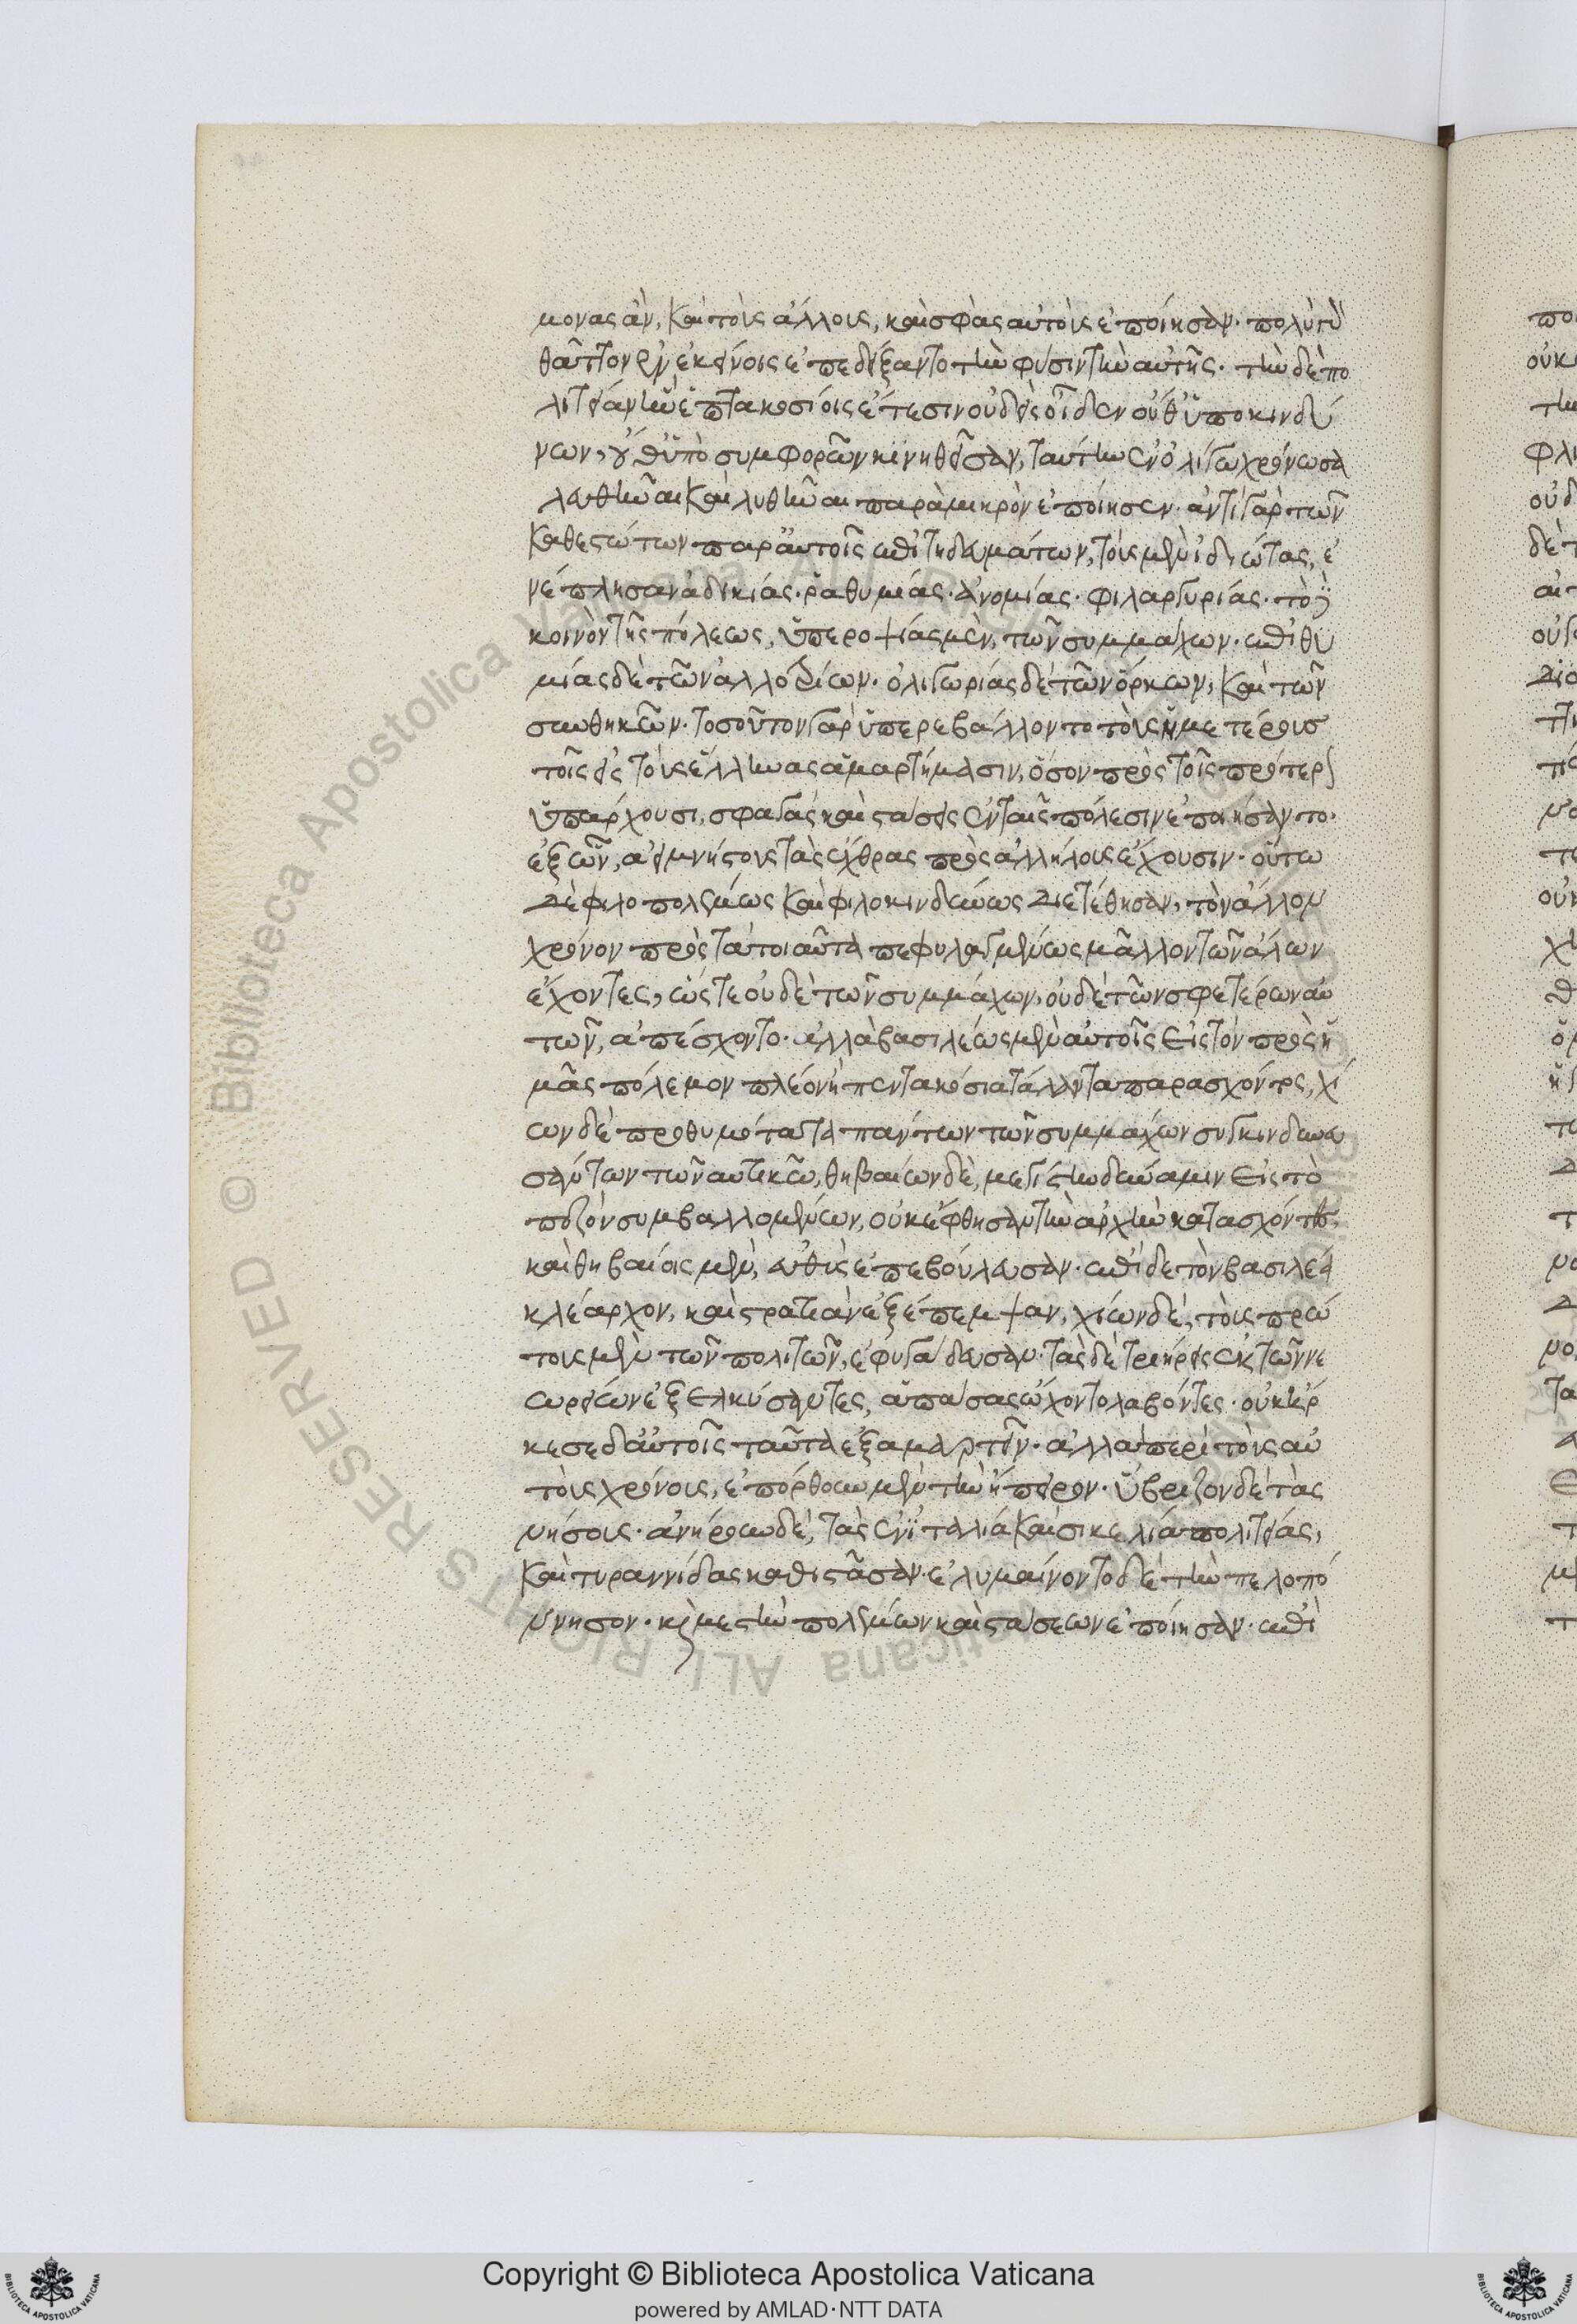 μονας ἂν, καὶ τοὺς ἄλλους, καὶ σφᾶς αὐτοὺς ἐποίησαν· πολὺ τὸ
θᾶττον ἐν ἐκείνοις ἐπεδείξαντο τὴν φύσιν τὴν αὐτῆς· τὴν δὲ πο
λιτείαν ἣν ἑπτακοσίοις ἔτεσιν οὐδεὶς οἶδεν οὔθ' ὑπο κινδύ
νων, οὔθ' ὑπὸ συμφορῶν κινηθεῖσαν, ταύτην ἐν ὀλίγω χρόνω σα
λευθῆναι καὶ λυθῆναι παρὰ μικρὸν ἐποίησεν· ἀντὶ γὰρ τῶν
καθεστώτων παρ' αὐτοῖς ἐπιτηδευμάτων, τοὺς μὲν ἰδιώτας, ἐ
νέπλησαν ἀδικίας· ῥαθυμίας· ἀνομίας· φιλαργυρίας· τὸ δὲ
κοινὸν τῆς πόλεως, ὑπεροψίας μὲν, τῶν συμμάχων· ἐπιθυ
μίας δὲ τῶν ἀλλοτρίων· ὀλιγωρίας δὲ τῶν ὅρκων, καὶ τῶν
συνθηκῶν· τοσοῦτον γὰρ ὑπερεβάλλοντο τοὺς ἡμετέρους
τοῖς εἰς τοὺς ἕλληνας ἁμαρτήμασιν, ὅσον πρὸς τοῖς πρότερον
ὑπάρχουσι, σφαγὰς καὶ στάσεις ἐν ταῖς πόλεσιν ἐποίησαν το·
ἐξ ὧν, ἀειμνήστους τὰς ἔχθρας πρὸς ἀλλήλους ἔχουσιν· οὕτω
δὲ φιλοπολέμως καὶ φιλοκινδύνως διετέθησαν, τὸν ἄλλον
χρόνον πρὸς τὰ τοιαῦτα πεφυλαγμένως μᾶλλον τῶν ἄλων
ἔχοντες, ὥστε οὐδὲ τῶν συμμάχων, οὐδὲ τῶν σφετέρων αὐ
τῶν, ἀπέσχοντο· ἀλλὰ βασιλέως μὲν αὐτοῖς εἰς τὸν πρὸς ἡ
μᾶς πόλεμον πλέον ἢ πεντακόσια τάλαντα παρασχόντος, χί
ων δὲ προθυμότατα πάντων τῶν συμμάχων συγκινδυνευ
σάντων τῶν αυτικῶ, θηβαίων δὲ, μεγίστην δύναμιν εἰς τὸ
πεζὸν συμβαλλομένων, οὐκ ἔφθησαν τὴν ἀρχὴν κατασχόντες,
καὶ θηβαίοις μὲν, εὐθὺς ἐπεβούλευσαν· ἐπὶ δὲ τὸν βασιλέα
κλέαρχον, καὶ στρατιὰν ἐξέπεμψαν, χίων δὲ, τοὺς πρώ
τους μὲν τῶν πολιτῶν, ἐφυγάδευσαν· τὰς δὲ τριήρεις ἐκ τῶν νε
ωρείων ἐξελκύσαντες, ἁπάσας ὤχοντο λαβόντες· οὐκ ἤρ
κεσε δ' αὐτοῖς ταῦτα ἐξαμαρτεῖν· ἀλλὰ περὶ τοὺς αὐ
τοὺς χρόνους, ἐπόρθουν μὲν τὴν ἤπειρον· ὕβριζον δὲ τὰς
νήσους· ἀνήρουν δὲ, τὰς ἐν ἰταλία καὶ σικελία πολιτείας,
καὶ τυραννίδας καθίστασαν· ἐλυμαίνοντο δὲ τὴν πελοπό
ννησον· καὶ μεστὴν πολέμων καὶ στάσεων ἐποίησαν· ἐπὶ
Copyright © Biblioteca Apostolica Vaticana
powered by AMLAD·NTT DATA